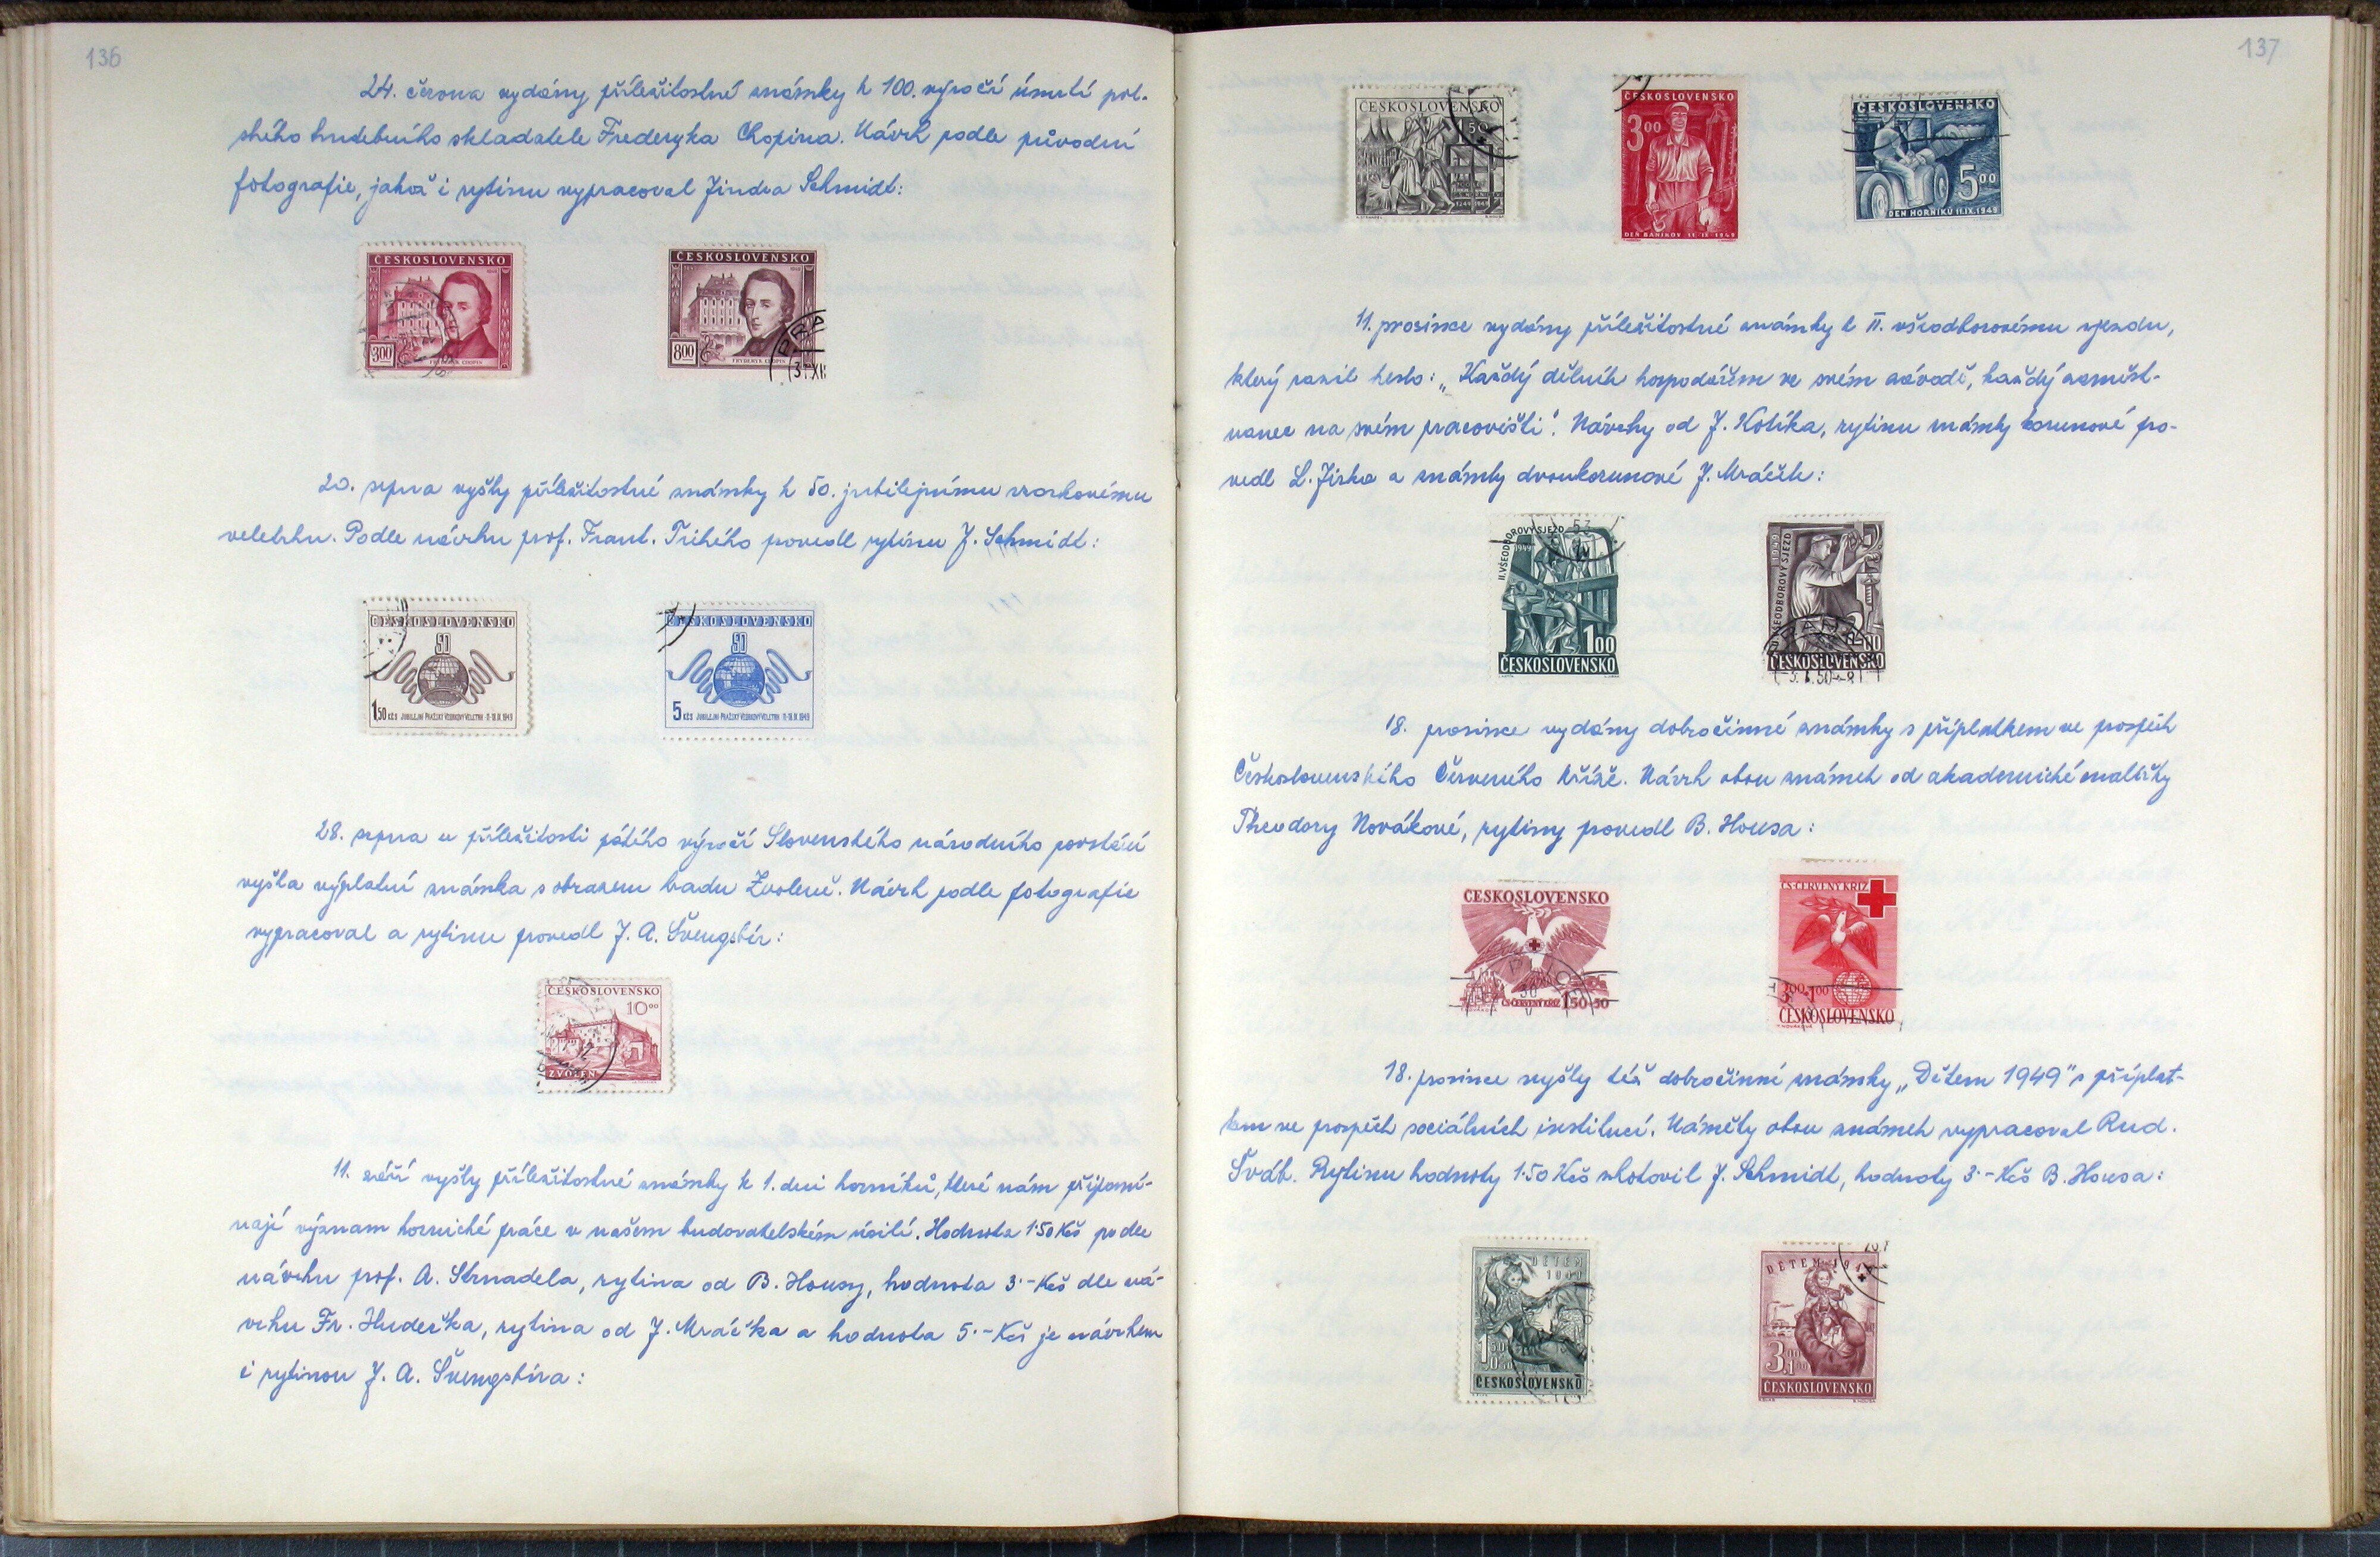 136
24. června vydány příležitostné známky k 100. výročí úmrtí pol-
ského hudebního skladatele Frederyka Chopina. Návrh podle původní
fotografie, jakož i rytinu vypracoval Jindra Schmidt:
ČESKOSLOVENSKO
300
FRYDERYK CHOPIN
ČESKOSLOVENSKO
800
FRYDERYK CHOPIN
20. srpna vyšly příležitostné známky k 50. jubilejnímu vzorkovému
veletrhu. Podle návrhu prof. Frant. Tichého provedl rytinu J. Schmidt:
ČESKOSLOVENSKO
50
1,50 KČS JUBILEJNÍ PRAŽSKÝ VZORKOVÝ VELETRH 11-18. IX. 1949
ČESKOSLOVENSKO
50
5 KČS JUBILEJNÍ PRAŽSKÝ VZORKOVÝ VELETRH 11-18. IX. 1949
28. srpna u příležitosti pátého výročí Slovenského národního povstání
vyšla výplatní známka s obrazem hradu Zvoleně. Návrh podle fotografie
vypracoval a rytinu provedl J. A. Švengsbír:
ČESKOSLOVENSKO
10 00
ZVOLEN
11. září vyšly příležitostné známky k 1. dni horníků, které nám připomí-
nají význam hornické práce v našem budovatelském úsilí. Hodnota 1·50 Kčs podle
návrhu prof. A. Strnadela, rytina od B. Housy, hodnota 3·- Kčs dle ná-
vrhu Fr. Hudečka, rytina od J. Mráčka a hodnota 5·- Kčs je návrhem
i rytinou J. A. Švengsbíra:
137
ČESKOSLOVENSKO
1 50
1249 1949
ČESKOSLOVENSKO
3 00
DEŇ BANÍKOV 11. IX. 1949
ČESKOSLOVENSKO
5 00
DEN HORNÍKŮ 11.IX.1949
11. prosince vydány příležitostné známky k II. všeodborovému sjezdu,
který razil heslo: „Každý dělník hospodářem ve svém závodě, každý zaměst-
nanec na svém pracovišti". Návrhy od J. Kotíka, rytinu známky korunové pro-
vedl L. Jirka a známky dvoukorunové J. Mráček:
II. VŠEODBOROVÝ SJEZD
1949
1 00
ČESKOSLOVENSKO
II. VŠEODBOROVÝ SJEZD 1949
2 00
ČESKOSLOVENSKO
18. prosince vydány dobročinné známky s příplatkem ve prospěch
Československého Červeného kříže. Návrh obou známek od akademické malířky
Theodory Novákové, rytiny provedl B. Housa:
ČESKOSLOVENSKO
ČS ČERVENÝ KŘÍŽ 1 50+50
ČS ČERVENÝ KŘÍŽ
3 00+1 00
ČESKOSLOVENSKO
18. prosince vyšly též dobročinné známky „Dětem 1949" s příplat-
kem ve prospěch sociálních institucí. Náměty obou známek vypracoval Rud.
Šváb. Rytinu hodnoty 1·50 Kčs zhotovil J. Schmidt, hodnoty 3·- Kčs B. Housa:
DĚTEM
1949
1 50
0 50
ČESKOSLOVENSKO
DĚTEM 1949
3 00
1 00
ČESKOSLOVENSKO